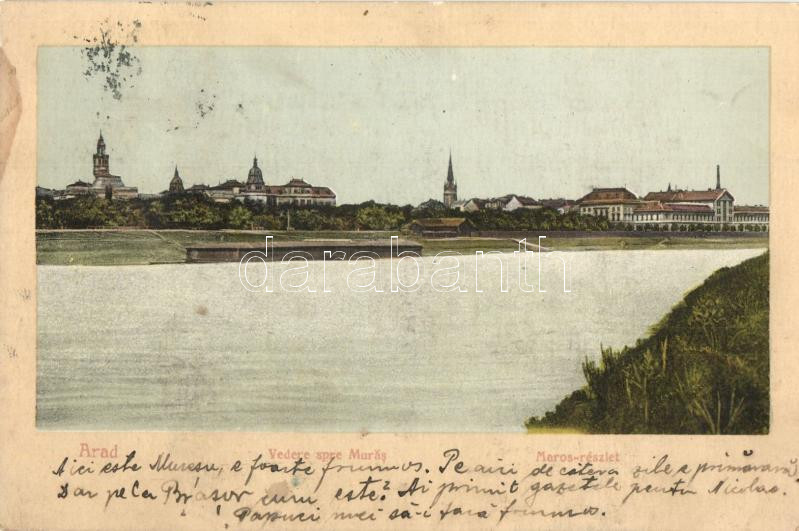 darabanth.com
Arad Vedere spre Murăş Maros-részlet
Aici este Mureșu, e foarte frumos. Pe aici de câteva zile e primăvară,
Dar pe la Brașov cum este? Ai primit gazetele pentru Nicolae.
Papuci mei să-i facă frumos.